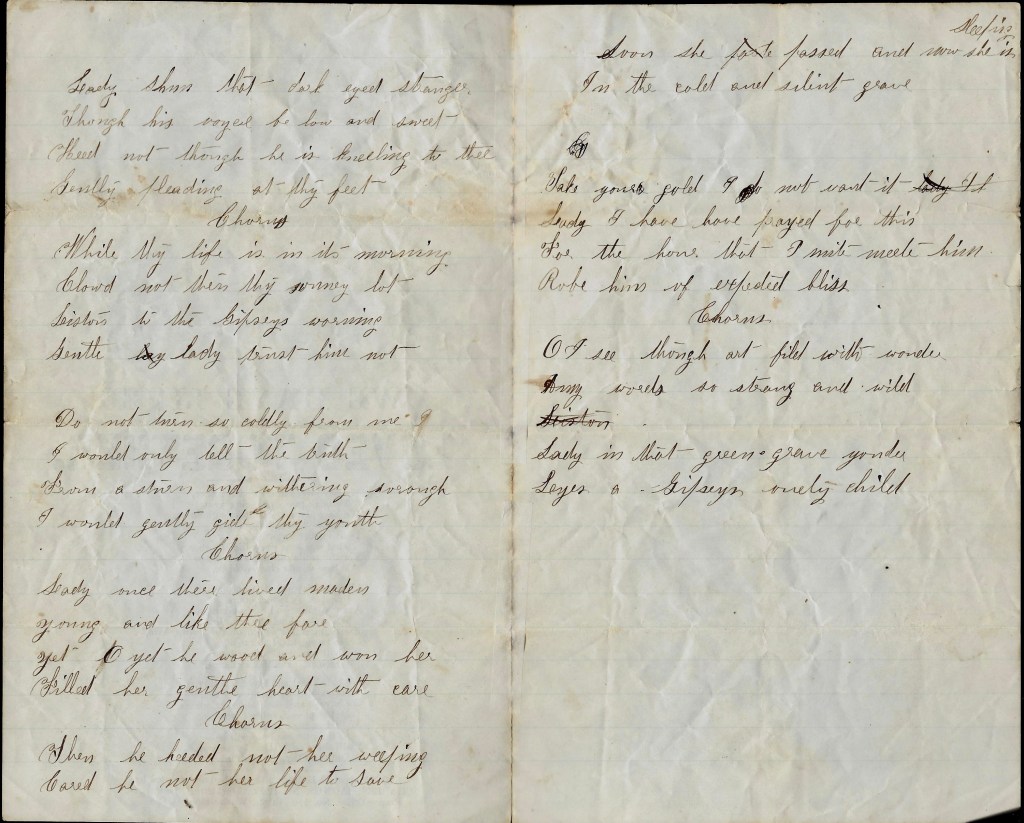 Lady shun that dark eyed stranger
Though his voyce be low and sweet
Heed not though he is kneeling to thee
Gently pleading at thy feet
Chorus
While thy life is in its morning
Clowd not then thy sunney lot
Liston to the Gipseys worning
Gentle lady trust him not
Do not turn so coldly from me
I would only tell the truth
From a sturn and withering sorough
I would gently gide thy youth
Chorus
Lady once there lived maden
young and like thee fare
yet O yet he wood and won her
Filled her gentle heart with care
Chorus
Then he heeded not her weeping
Cared he not her life to save
Soon she passed and now she is sleepin
In the cold and silent grave
Take your gold I do not want it
Lady I have have prayed for this
For the hour that I mite meete him
Robe him of expeded bliss
Chorus
O I see though art fild with wonder
my words so strang and wild
Liston
Lady in that green grave yonder
Leyes a Gipseys onely child